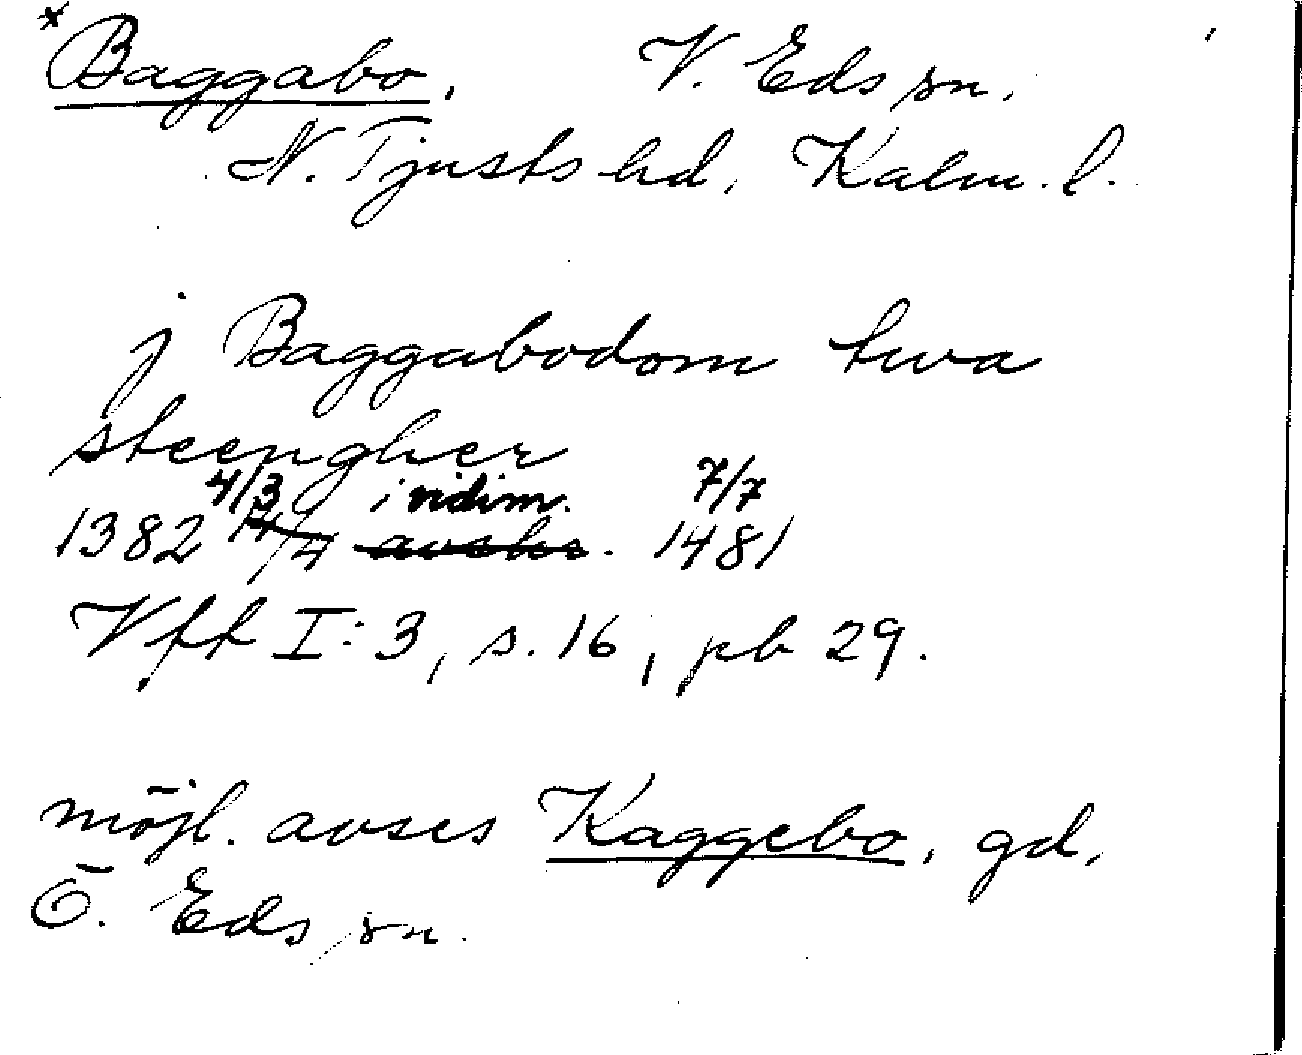 *Baggabo. V. Eds sn.
N. Tjusts hd, Kalm. l.
j Baggabodom twa
steengher
4/3 i vidim. 7/7
1382 14/4 avskr. 1481
Vft I:3, s. 16, pb 29.
möjl. avses Kaggebo, gd,
Ö. Eds sn.